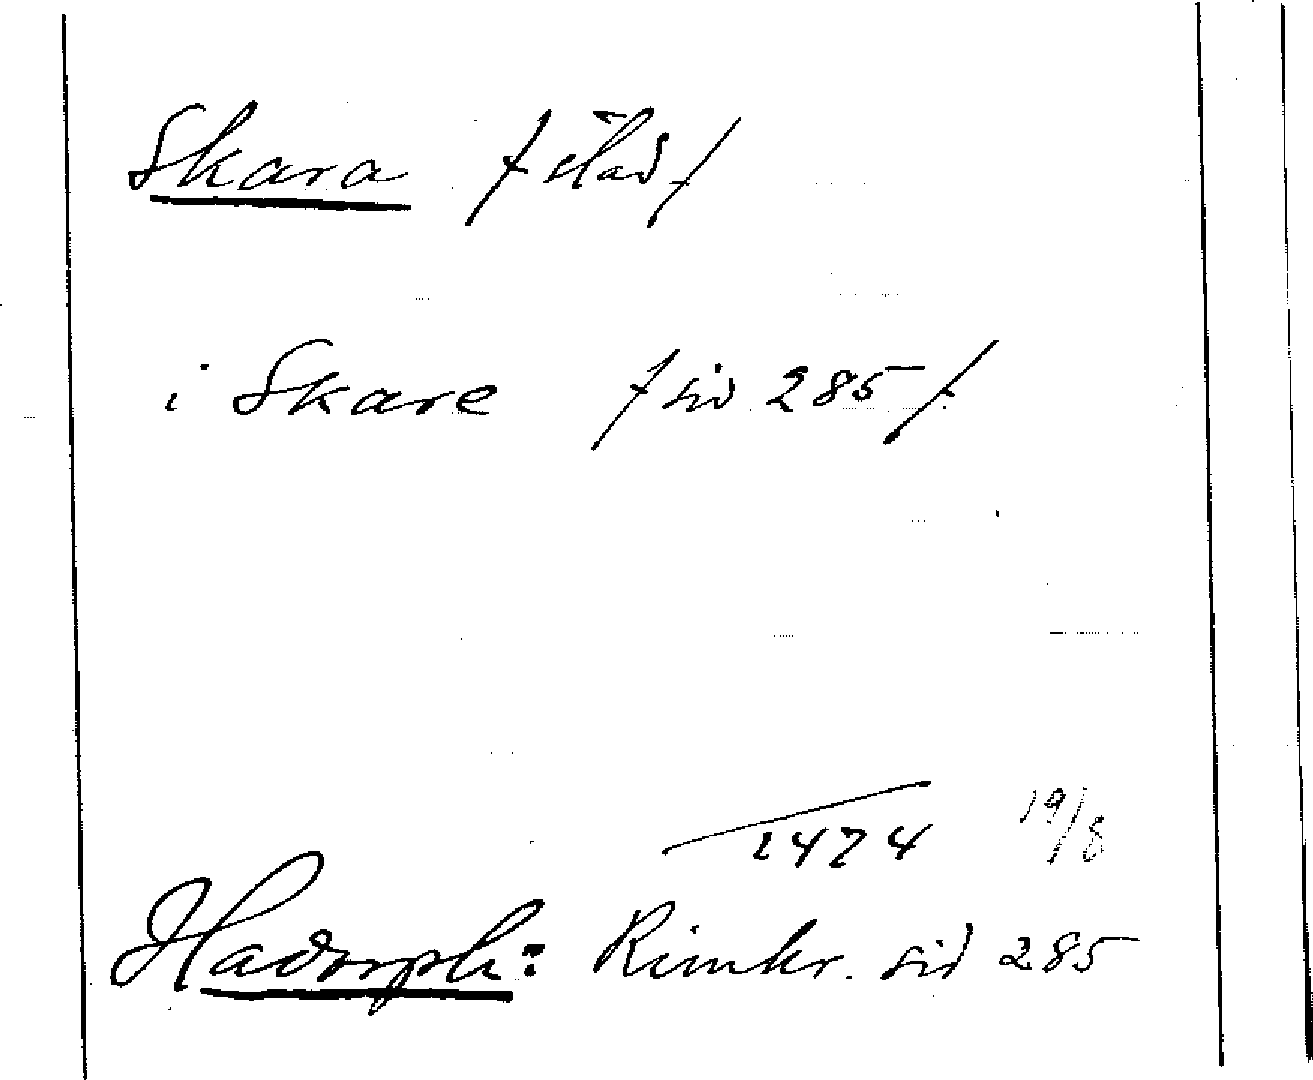 Skara /stad/
i Skare /sid 285/.
1474 19/8
Hadorph: Rimkr. sid 285